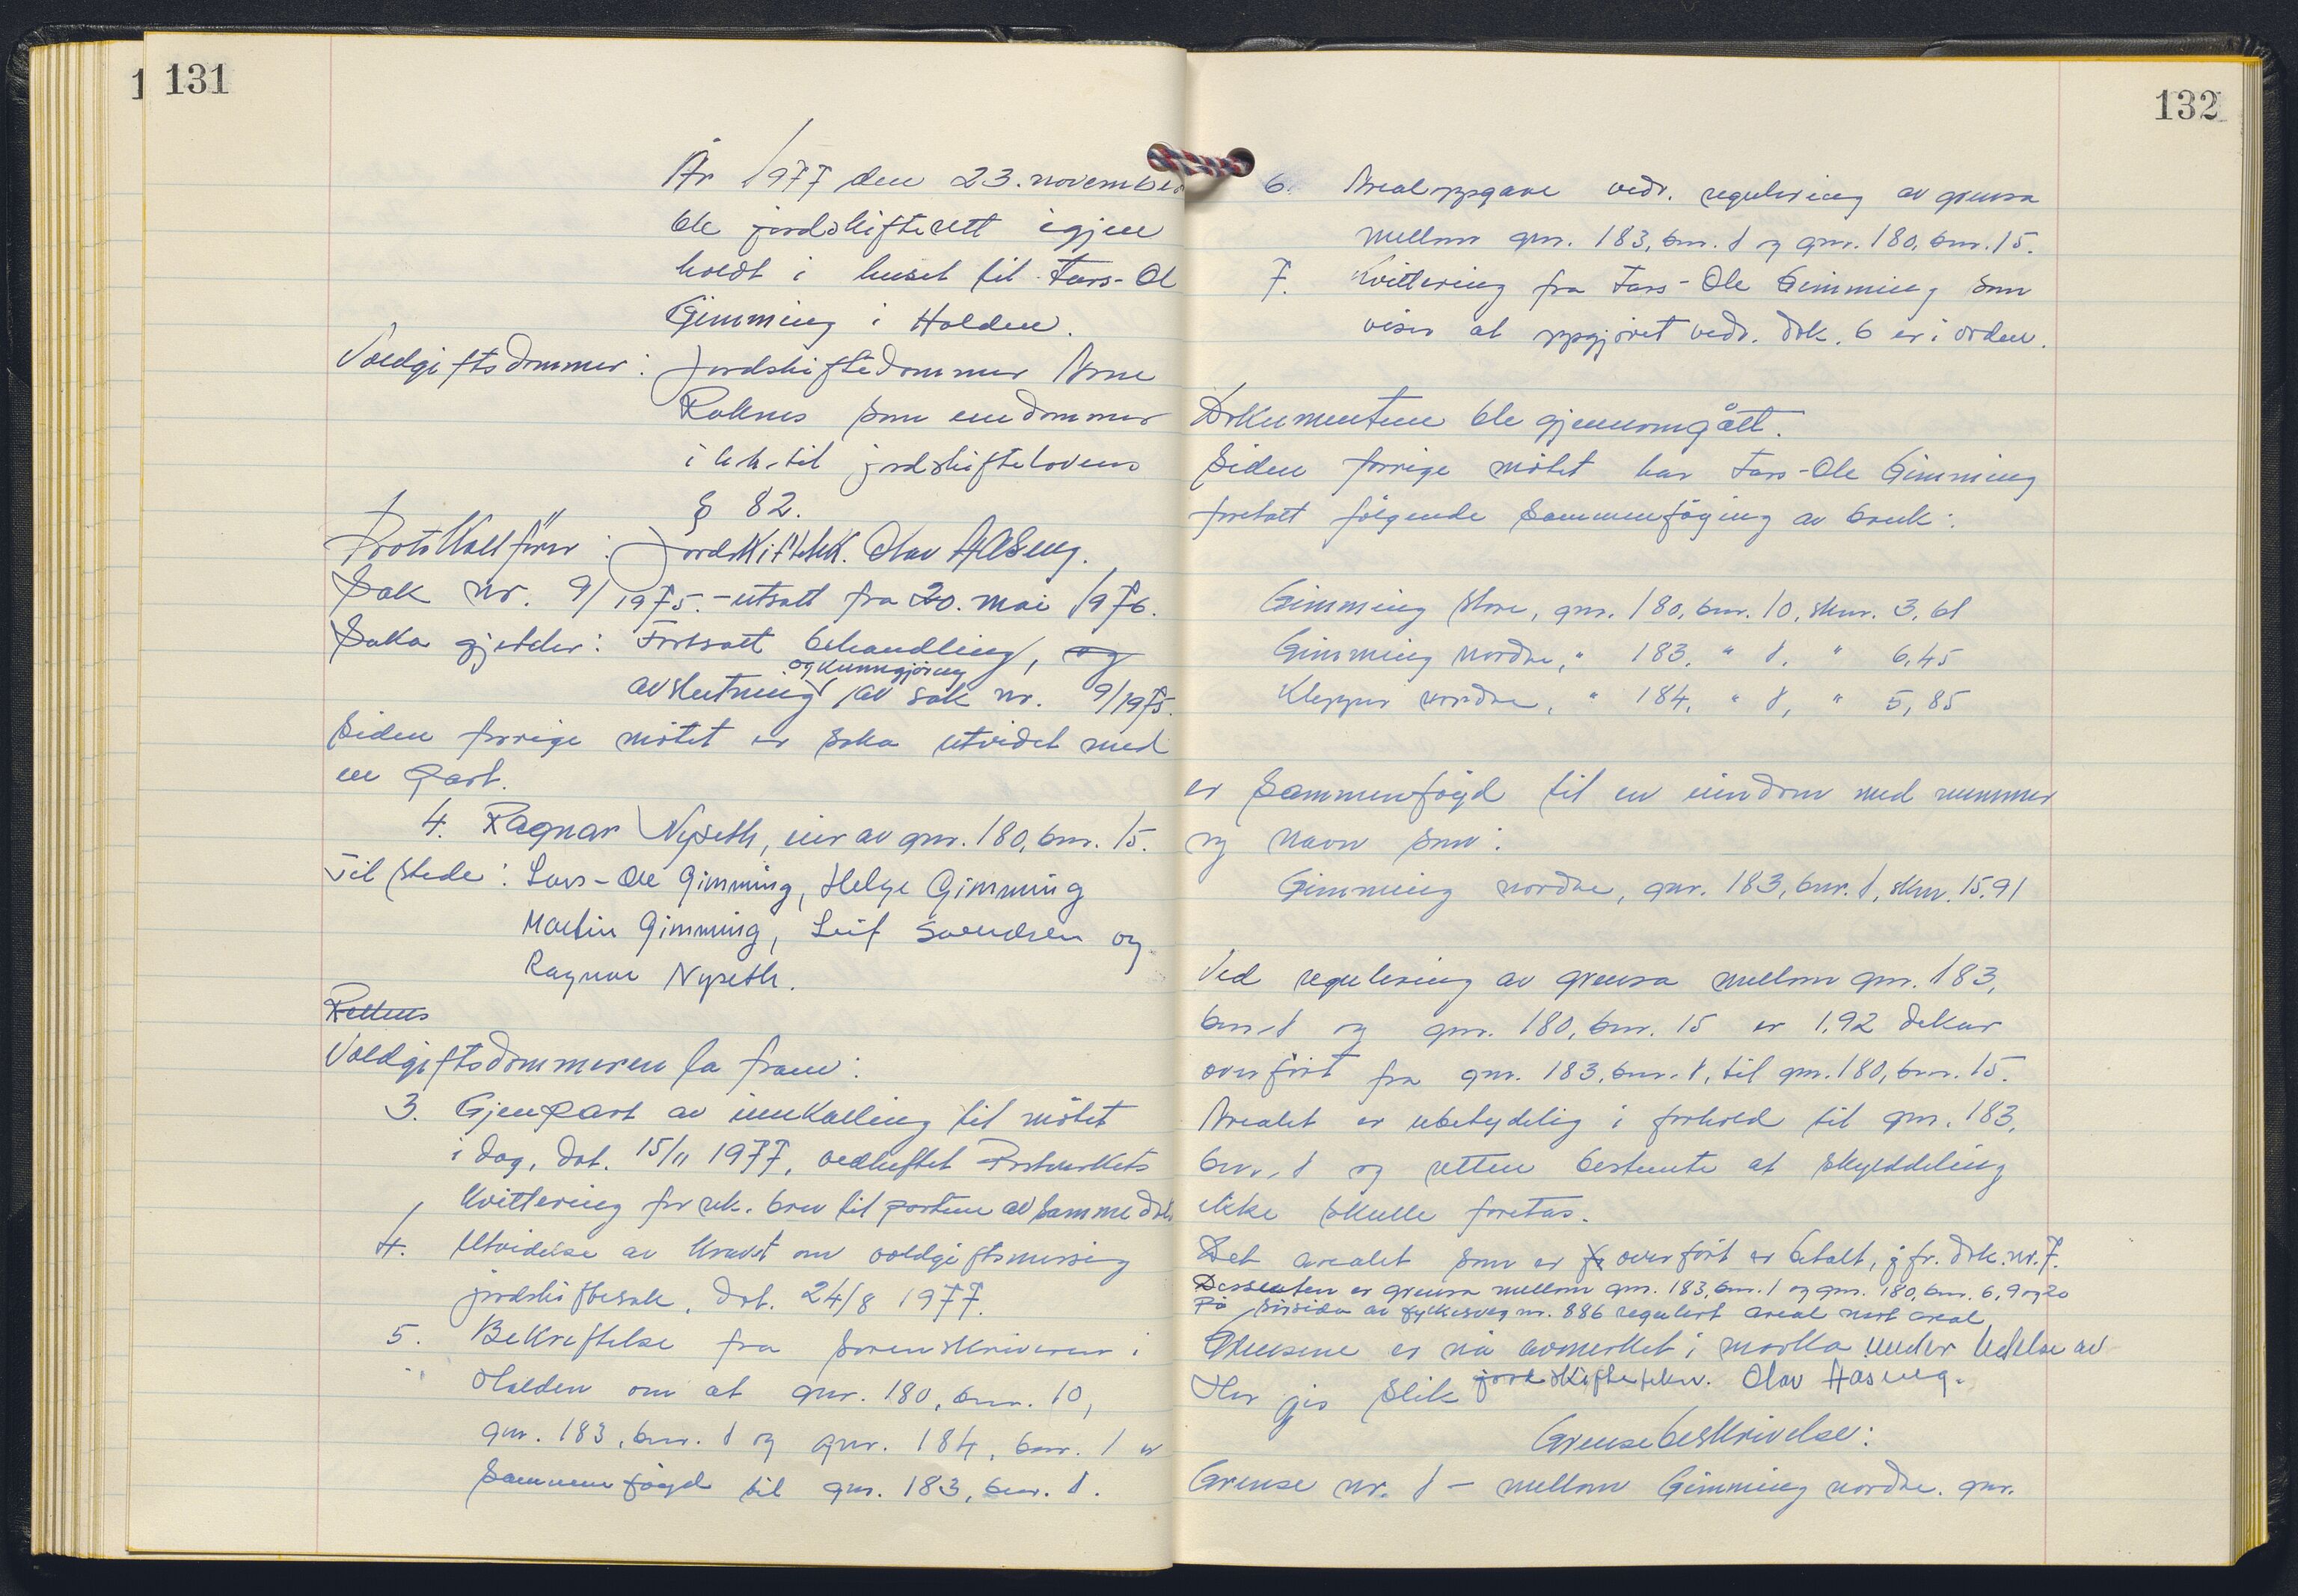 131
År 1977 den 23. november
ble jordskifterett igjen
holdt i huset til Lars-Ol
Gimming i Halden.
Voldgiftsdommer: Jordskiftedommer Arne
Roknes som enedommer
i h.h. til jordskiftelovens
§ 82.
Protokollfører: Jordskiftekk. Olav Haseng.
Sak nr. 9/1975. - utsatt fra 20. mai 1976.
Saka gjelder: Fortsatt behandling, og
og kunngjøring
avslutning av sak nr. 9/1975.
Siden forrige møtet er saka utvidet med
en part.
4. Ragnar Nyseth, eier av gnr. 180, bnr. 15.
Til stede: Lars-Ole Gimming, Helge Gimming
Martin Gimming, Leif Svendsen og
Ragnar Nyseth.
Rettens
Voldgiftsdommeren la fram:
3. Gjenpart av innkalling til møtet
i dag, dat. 15/11 1977, vedheftet Postverkets
kvittering for rek. brev til partene av samme dato
4. Utvidelse av kravet om voldgiftsmessig
jordskiftesak, dat. 24/8 1977.
5. Bekreftelse fra sorenskriveren i
Halden om at gnr. 180, bnr. 10,
gnr. 183, bnr. 1 og gnr. 184, bnr. 1 er
sammenføyd til gnr. 183, bnr. 1.
132
6. Arealoppgave vedr. regulering av grensa
mellom gnr. 183, bnr. 1 og gnr. 180, bnr. 15.
7. Kvittering fra Lars-Ole Gimming som
viser at oppgjøret vedr. dok. 6 er i orden.
Dokumentene ble gjennomgått.
Siden forrige møtet har Lars-Ole Gimming
foretatt følgende sammenføying av bruk:
Gimming store, gnr. 180, bnr. 10, skm. 3,61
Gimming nordre, " 183, " 1, " 6,45
Klepper nordre, " 184, " 1, " 5,85
er sammenføyd til en eiendom med nummer
og navn som:
Gimming nordre, gnr. 183, bnr. 1, skm. 15,91
Ved regulering av grensa mellom gnr. 183,
bnr. 1 og gnr. 180, bnr. 15 er 1,92 dekar
overført fra gnr. 183, bnr. 1, til gnr. 180, bnr. 15.
Arealet er ubetydelig i forhold til gnr. 183,
bnr. 1 og retten bestemte at skylddeling
ikke skulle foretas.
Det arealet som er fo overført er betalt, jfr. dok. nr. 7.
Dessuten er grensa mellom gnr. 183, bnr. 1 og gnr. 180, bnr. 6, 9 og 20
På sørsida av fylkesveg nr. 886 regulert areal mot areal
Grensene er nå avmerket i marka under ledelse av
jordskiftetekn. Olav Haseng.
Her gis slik
Grensebeskrivelse:
Grense nr. 1 - mellom Gimming nordre, gnr.